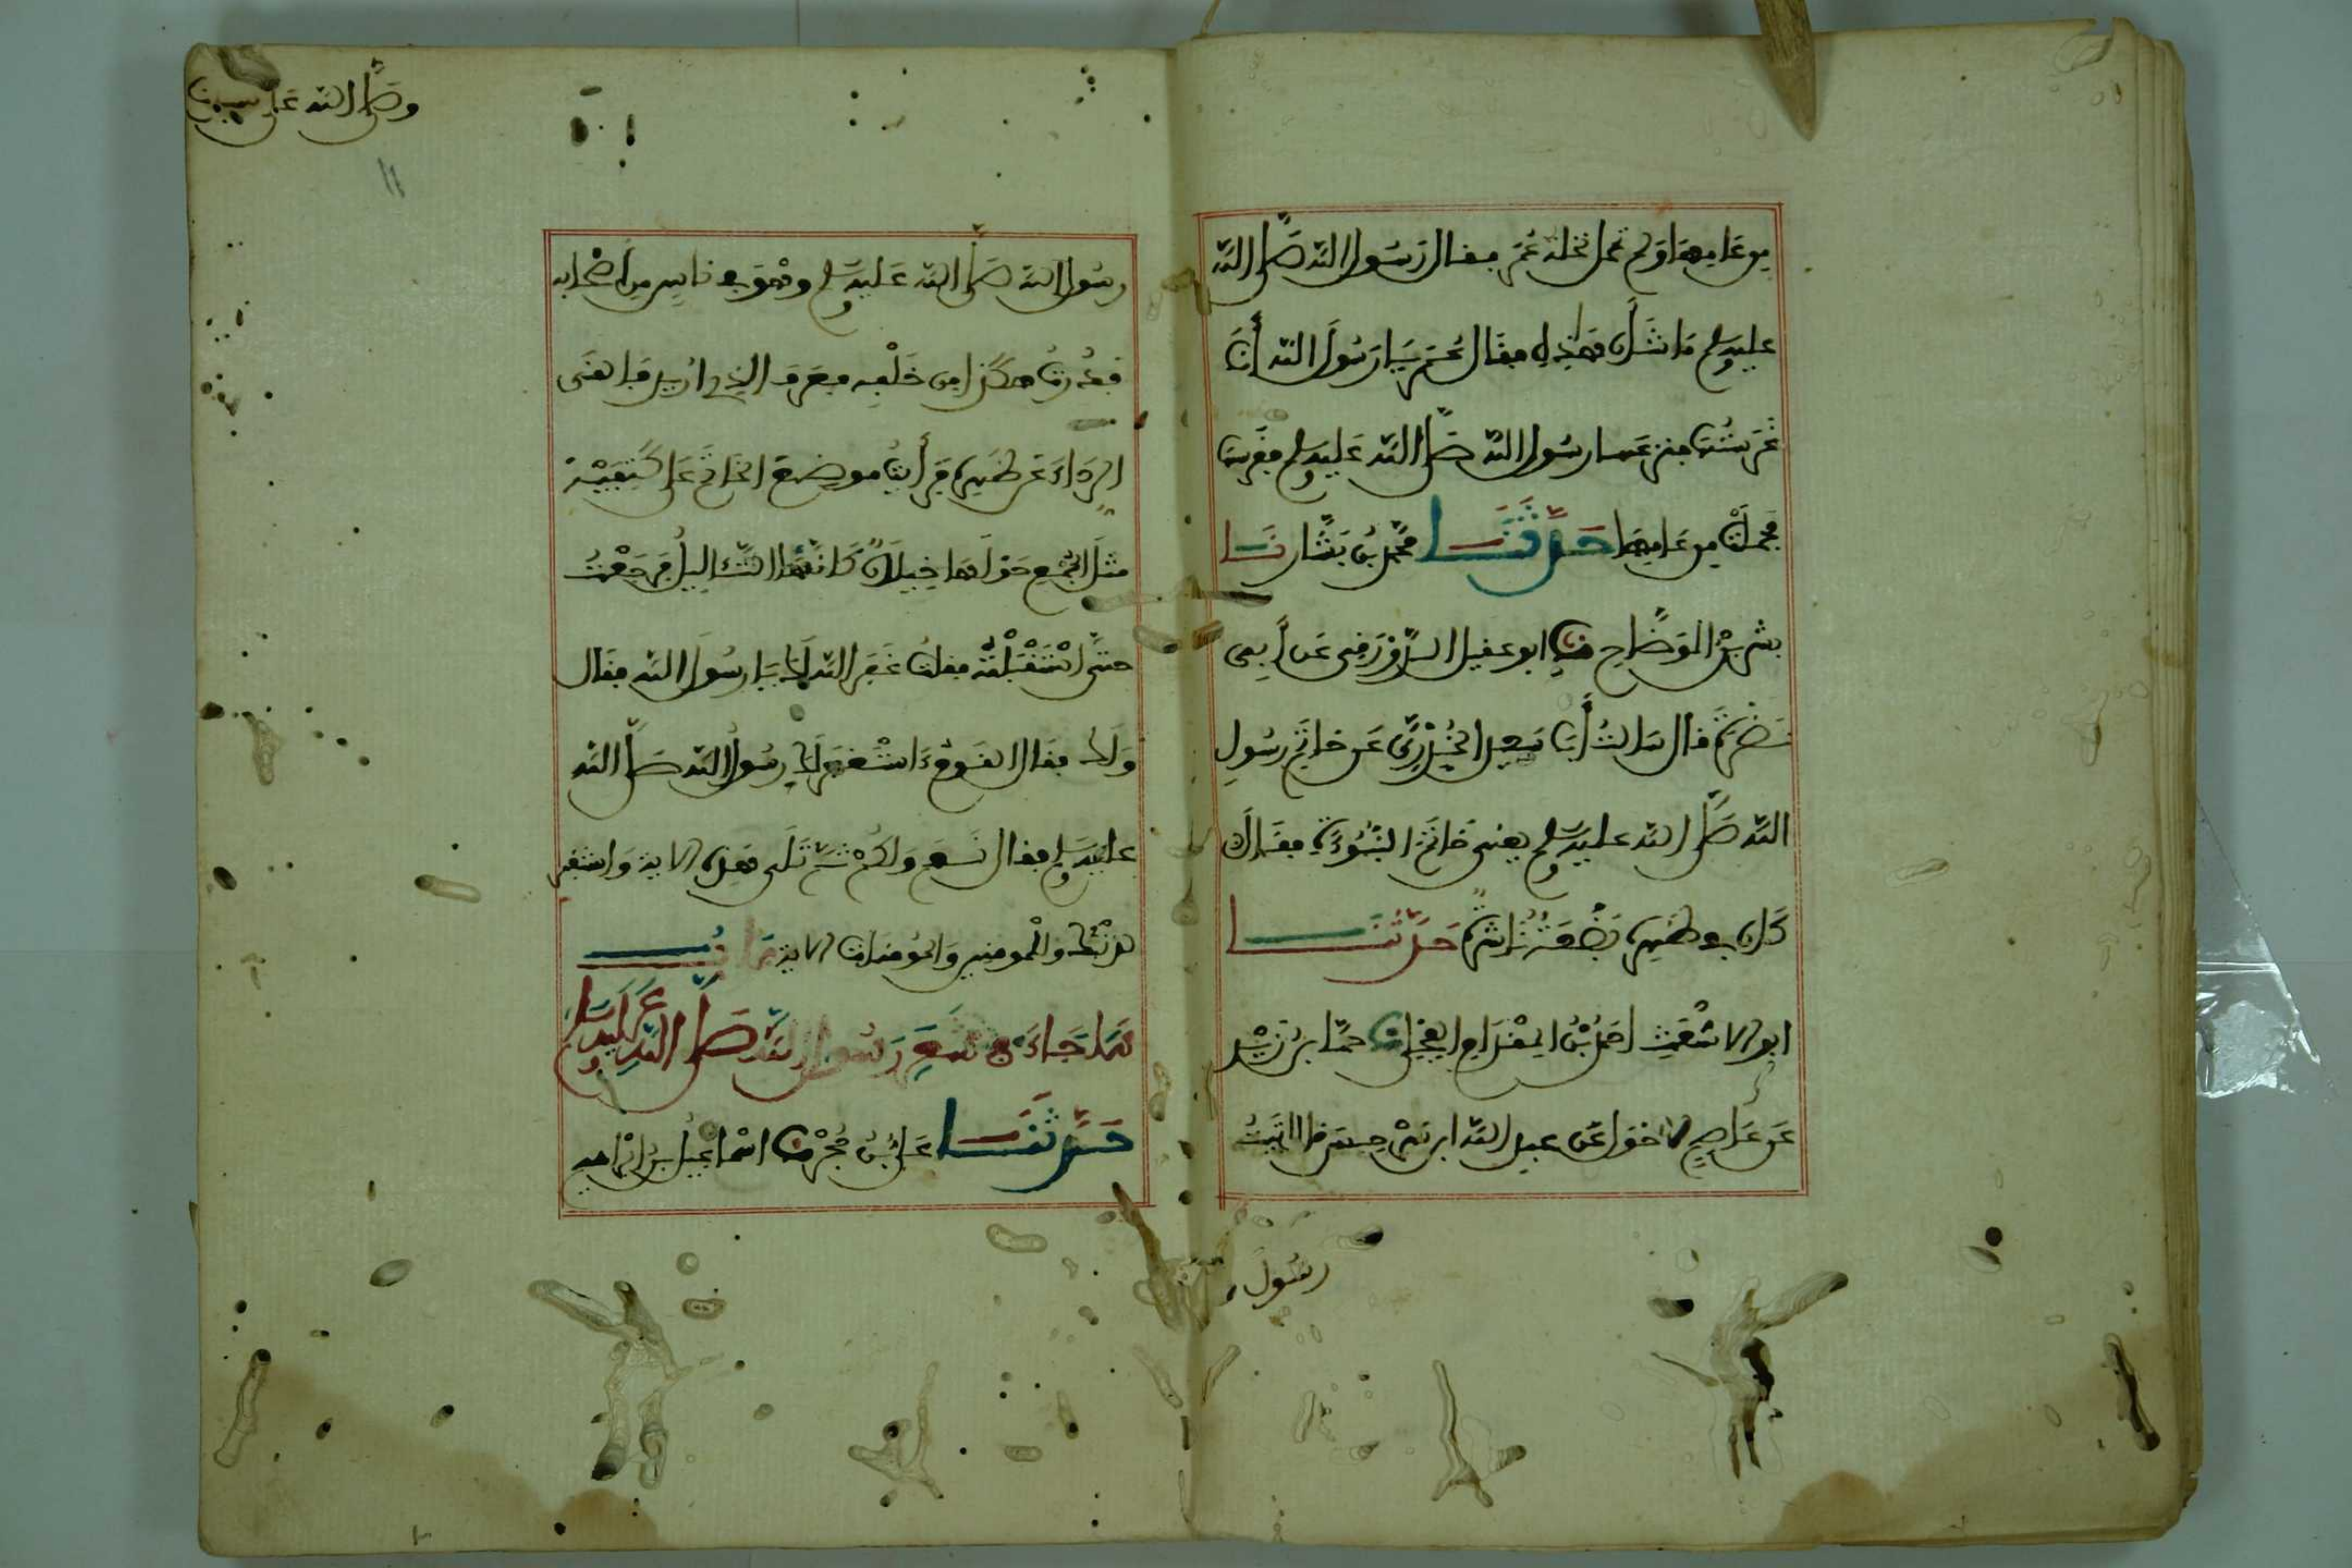 من عامها ولم تحمل نخلة عمر فقال رسول الله صلى الله
عليه وسلم ما شأن هذه فقال عمر يا رسول الله أنا
غرستها فنزعها رسول الله صلى الله عليه وسلم فغرسها
فحملت من عامها حدثنا محمد بن بشار نا
بشر بن الوضاح نا ابو عقيل الدورقي عن أبي
نضرة قال سالت أبا سعيد الخدري عن خاتم رسول
الله صلى الله عليه وسلم يعني خاتم النبوءة فقال
كان في ظهره بضعة ناشزة حدثنا
ابو الاشعث احمد بن المقدام العجلي نا حماد بن زيد
عن عاصم الاحول عن عبد الله ابن سرجس قال اتيت
رسول
وصلى الله على سيدنا
11
رسول الله صلى الله عليه وسلم وهو في ناس من أصحابه
فدرت هكذا من خلفه فعرف الذي اريد فالقى
الرداء عن ظهره فرأيت موضع الخاتم على كتفيه
مثل الجمع حولها خيلان كانها الثآليل فرجعت
حتى استقبلته فقلت غفر الله لك يا رسول الله فقال
ولك فقال القوم ءاستغفر لك رسول الله صلى الله
عليه وسلم فقال نعم ولكم ثم تلى هذه الاية واستغفر
لذنبك وللمومنين والمومنات الاية باب
ما جاء في شعر رسول الله صلى الله عليه وسلم
حدثنا علي بن حجر نا اسماعيل بن ابراهيم